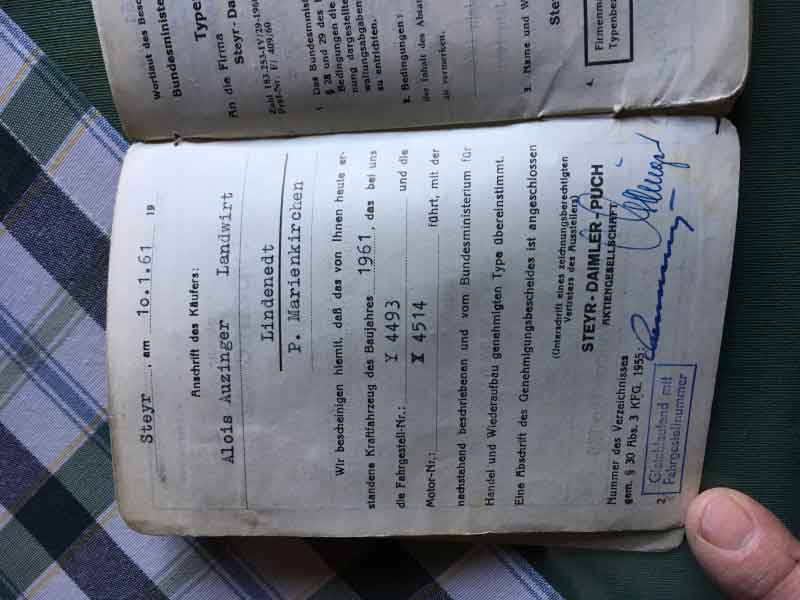 Wortlaut des Besc
Bundesminister
Typen
An die Firma
Steyr-Da
Zahl: 183.253-IV/29-196
Prof-Nr: F/ 409,60
1. Das Bundesminist
§ 28 und 29 des
Bedingungen die
nung dargestellte
waltungsabgaben
zu entrichten.
2. Bedingungen:
der Inhalt des
zu vermerken.
3. Name und W
Ste
4.
Firmenma
Typenbez
Steyr, am 10.1.61 19
Anschrift des Käufers:
Alois Auzinger Landwirt
Lindenedt
P. Marienkirchen
Wir bescheinigen hiemit, daß das von Ihnen heute er-
standene Kraftfahrzeug des Baujahres 1961, das bei uns
die Fahrgestell-Nr.: Y 4493 und die
Motor-Nr.: X 4514 führt, mit der
nachstehend beschriebenen und vom Bundesministerium für
Handel und Wiederaufbau genehmigten Type übereinstimmt.
Eine Abschrift des Genehmigungsbescheides ist angeschlossen
(Unterschrift eines zeichnungsberechtigten
Vertreters des Ausstellers)
STEYR-DAIMLER-PUCH
AKTIENGESELLSCHAFT
Nummer des Verzeichnisses
gem. § 30 Abs. 3 KFG. 1955:
2 Gleichlautend mit
Fahrgestellnummer